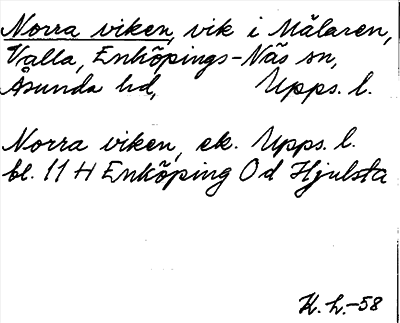 Norra viken, vik i Mälaren,
Valla, Enköpings-Näs sn,
Åsunda hd, Upps. l.
Norra viken, ek. Upps. l.
bl. 11 H Enköping 0 d Hjulsta
H. L.-58